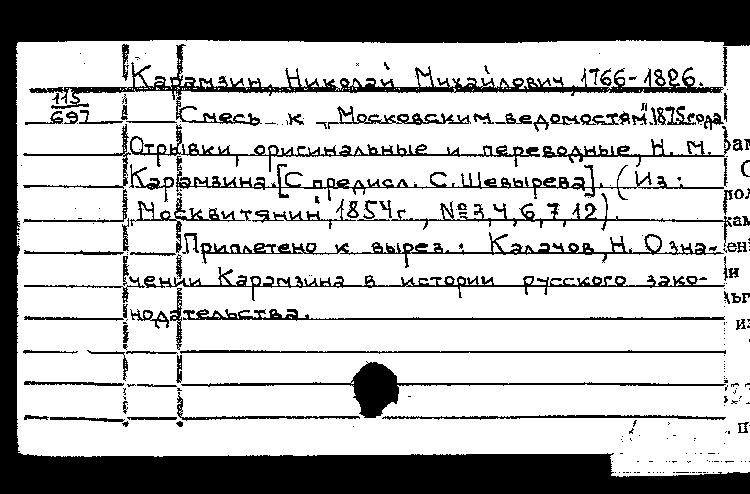 Карамзин, Николай Михайлович, 1766-1826.
115
697
Смесь к „Московским ведомостям" 1875 года
Отрывки, оригинальные и переводные, Н. М.
Карамзина. [С предисл. С. Шевырева]. (Из:
„Москвитянин", 1854 г., №№ 3, 4, 6, 7, 12).
Приплетено к вырез.: Калачов, Н. О зна-
чении Карамзина в истории русского зако-
нодательства.